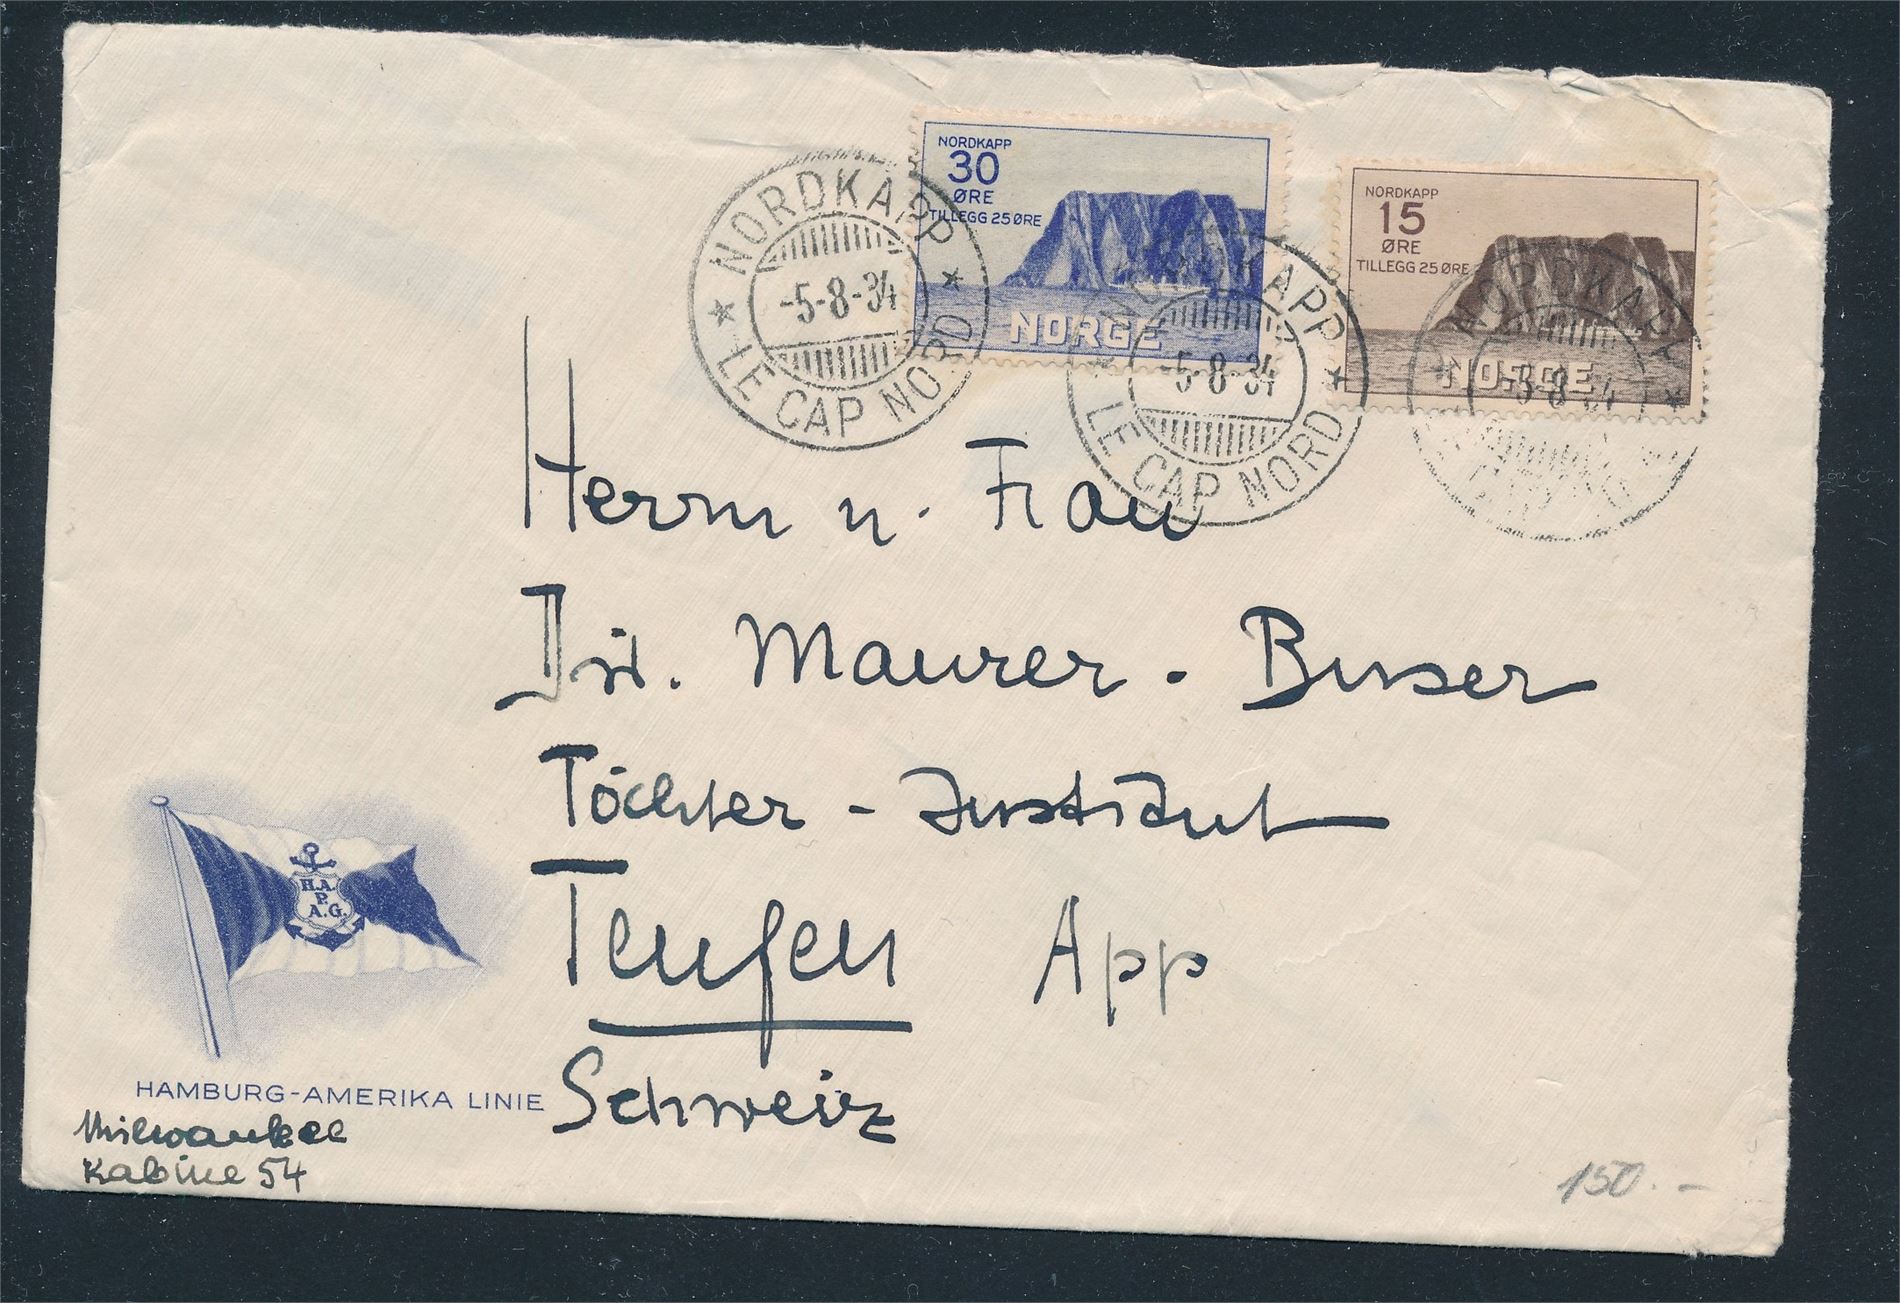 NORDKAPP
30
ØRE
TILLEGG 25 ØRE
NORGE
NORDKAPP
15
ØRE
TILLEGG 25 ØRE
NORGE
NORDKAPP
-5-8-34
LE CAP NORD
NORDKAPP
-5-8-34
LE CAP NORD
NORDKAPP
-5-8-34
Herrn u. Frau
Maurer - Buser
Töchter - Institut
Teufen App
Schweiz
H.A.
P.
A.G.
HAMBURG-AMERIKA LINIE
Milwaukee
Kabine 54
150.-